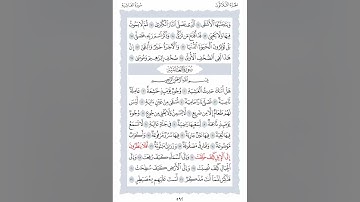 الجزء الثلاثون
سورة الغاشية
وَيَتَجَنَّبُهَا ٱلْأَشْقَى ۝ ٱلَّذِى يَصْلَى ٱلنَّارَ ٱلْكُبْرَىٰ ۝ ثُمَّ لَا يَمُوتُ
فِيهَا وَلَا يَحْيَىٰ ۝ قَدْ أَفْلَحَ مَن تَزَكَّىٰ ۝ وَذَكَرَ ٱسْمَ رَبِّهِۦ فَصَلَّىٰ ۝
بَلْ تُؤْثِرُونَ ٱلْحَيَوٰةَ ٱلدُّنْيَا ۝ وَٱلْءَاخِرَةُ خَيْرٌ وَأَبْقَىٰٓ ۝ إِنَّ
هَٰذَا لَفِى ٱلصُّحُفِ ٱلْأُولَىٰ ۝ صُحُفِ إِبْرَٰهِيمَ وَمُوسَىٰ ۝
سُورَةُ الْغَاشِيَةِ
بِسْمِ ٱللَّهِ ٱلرَّحْمَٰنِ ٱلرَّحِيمِ
هَلْ أَتَىٰكَ حَدِيثُ ٱلْغَٰشِيَةِ ۝ وُجُوهٌ يَوْمَئِذٍ خَٰشِعَةٌ ۝ عَامِلَةٌ
نَّاصِبَةٌ ۝ تَصْلَىٰ نَارًا حَامِيَةً ۝ تُسْقَىٰ مِنْ عَيْنٍ ءَانِيَةٍ ۝ لَّيْسَ
لَهُمْ طَعَامٌ إِلَّا مِن ضَرِيعٍ ۝ لَّا يُسْمِنُ وَلَا يُغْنِى مِن جُوعٍ ۝
وُجُوهٌ يَوْمَئِذٍ نَّاعِمَةٌ ۝ لِّسَعْيِهَا رَاضِيَةٌ ۝ فِى جَنَّةٍ عَالِيَةٍ ۝ لَّا تَسْمَعُ
فِيهَا لَٰغِيَةً ۝ فِيهَا عَيْنٌ جَارِيَةٌ ۝ فِيهَا سُرُرٌ مَّرْفُوعَةٌ ۝ وَأَكْوَابٌ
مَّوْضُوعَةٌ ۝ وَنَمَارِقُ مَصْفُوفَةٌ ۝ وَزَرَابِىُّ مَبْثُوثَةٌ ۝ أَفَلَا يَنظُرُونَ
إِلَى ٱلْإِبِلِ كَيْفَ خُلِقَتْ ۝ وَإِلَى ٱلسَّمَآءِ كَيْفَ رُفِعَتْ ۝ وَإِلَى
ٱلْجِبَالِ كَيْفَ نُصِبَتْ ۝ وَإِلَى ٱلْأَرْضِ كَيْفَ سُطِحَتْ ۝
فَذَكِّرْ إِنَّمَآ أَنتَ مُذَكِّرٌ ۝ لَّسْتَ عَلَيْهِم بِمُصَيْطِرٍ ۝